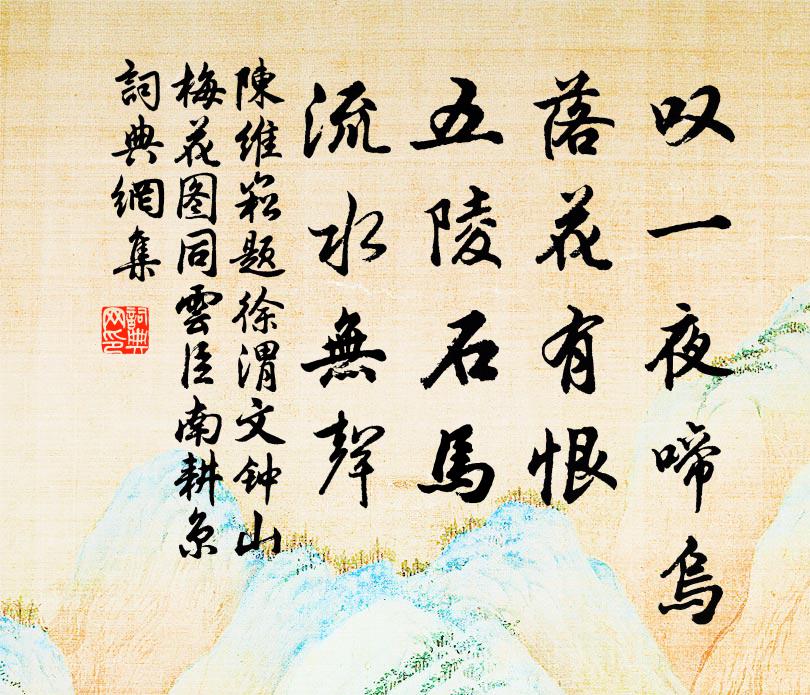 叹一夜啼烏
落花有恨
五陵石馬
流水無聲
陳維崧題徐渭文钟山
梅花图同雲臣南耕京
詞典網集
詞典網印